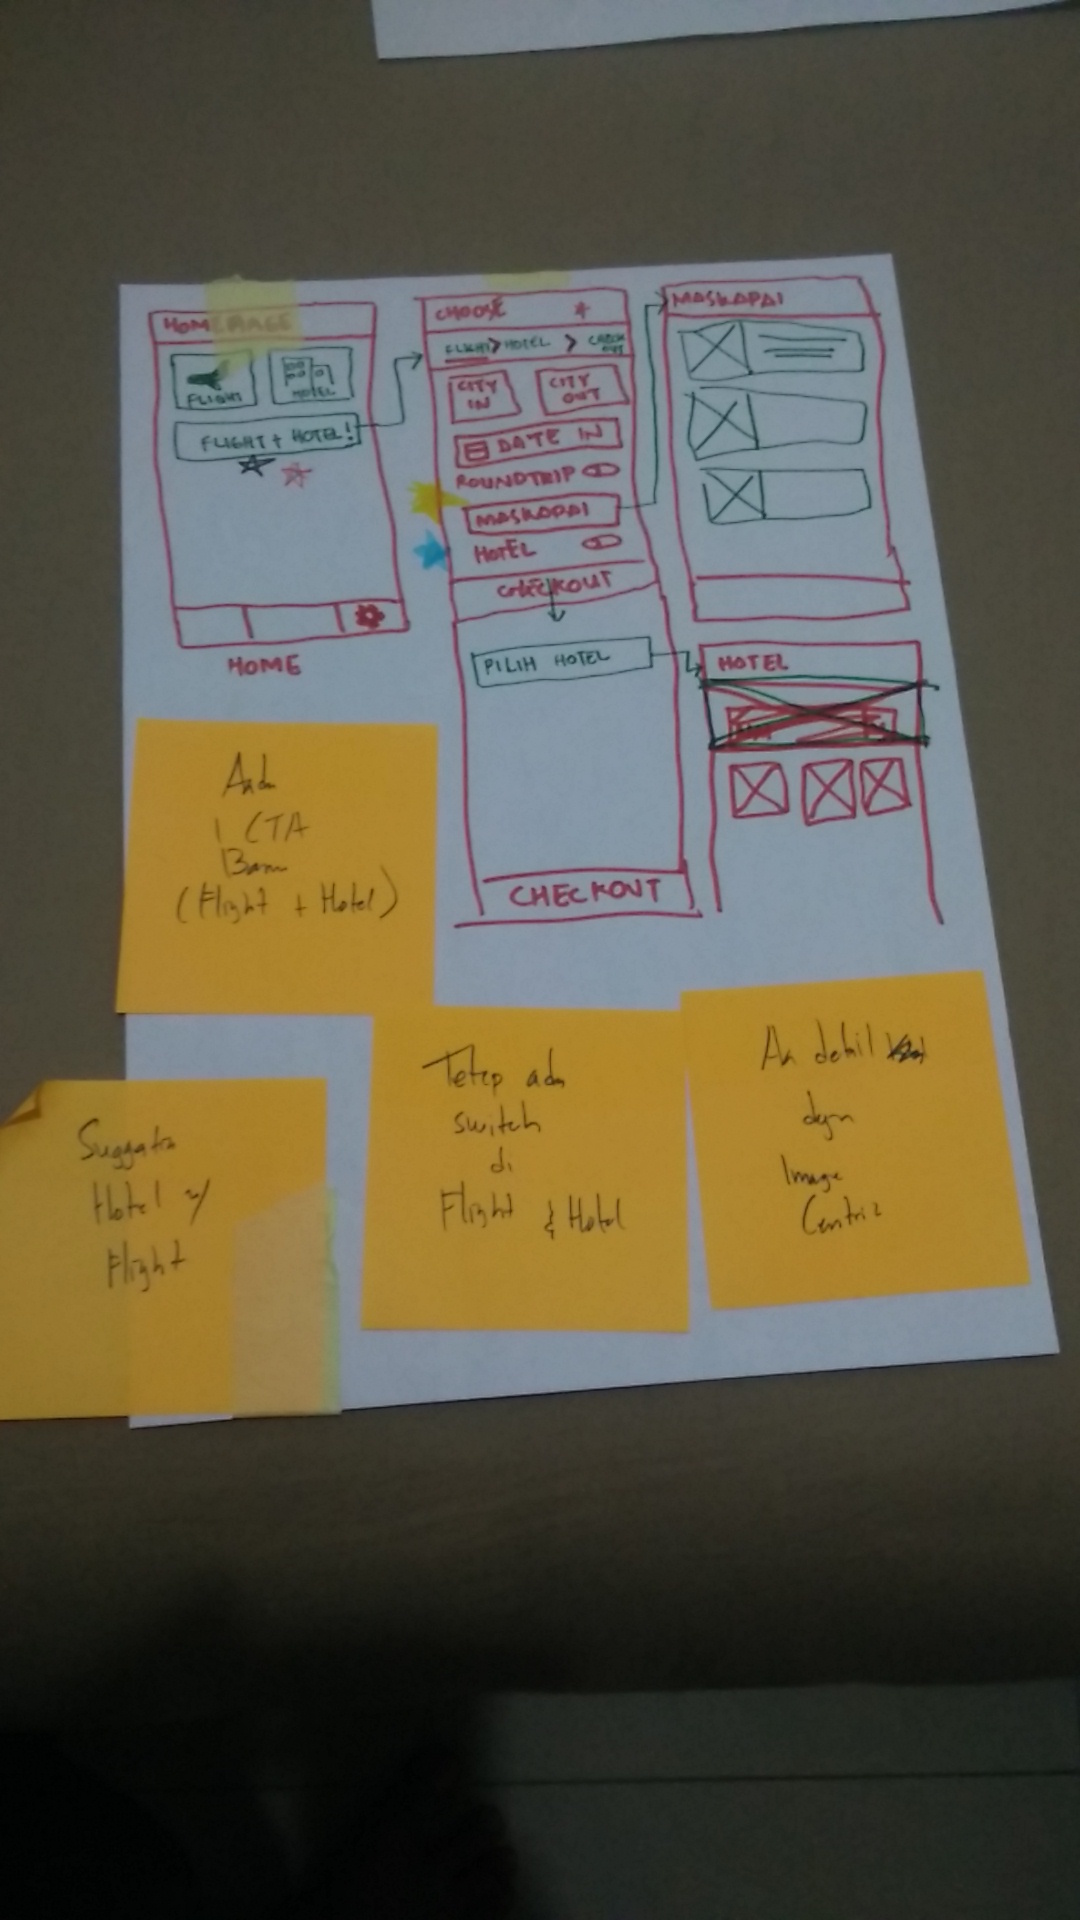 HOMEPAGE
FLIGHT
HOTEL
FLIGHT + HOTEL!
HOME
CHOOSE
FLIGHT > HOTEL > CHECK OUT
CITY IN
CITY OUT
DATE IN
ROUNDTRIP
MASKAPAI
HOTEL
CHECKOUT
PILIH HOTEL
CHECKOUT
MASKAPAI
HOTEL
Ada
1 CTA
Baru
(Flight + Hotel)
Hotel w/
Flight
Tetep ada
switch
di
Flight & Hotel
detil
dgn
Image